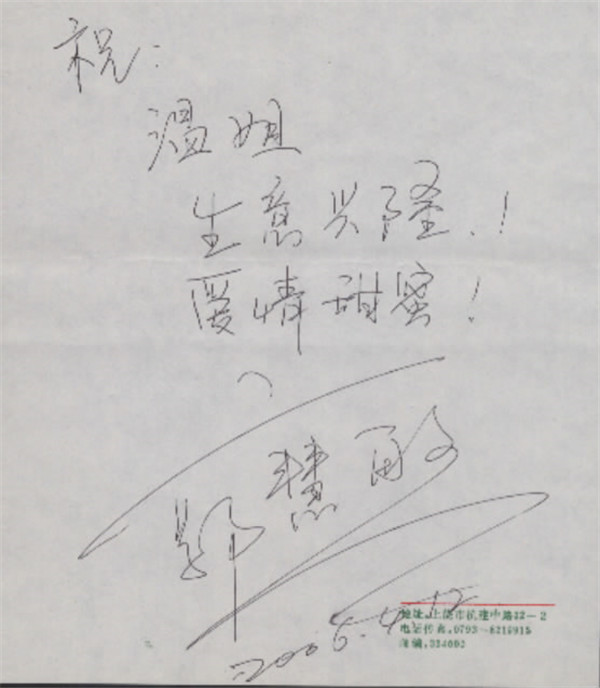 祝：
温姐
生意兴隆！
爱情甜蜜！
郭慧敏
2006.4.12
地址.上饶市抗建中路22－2
电话传真.0793－8219915
邮编.334000